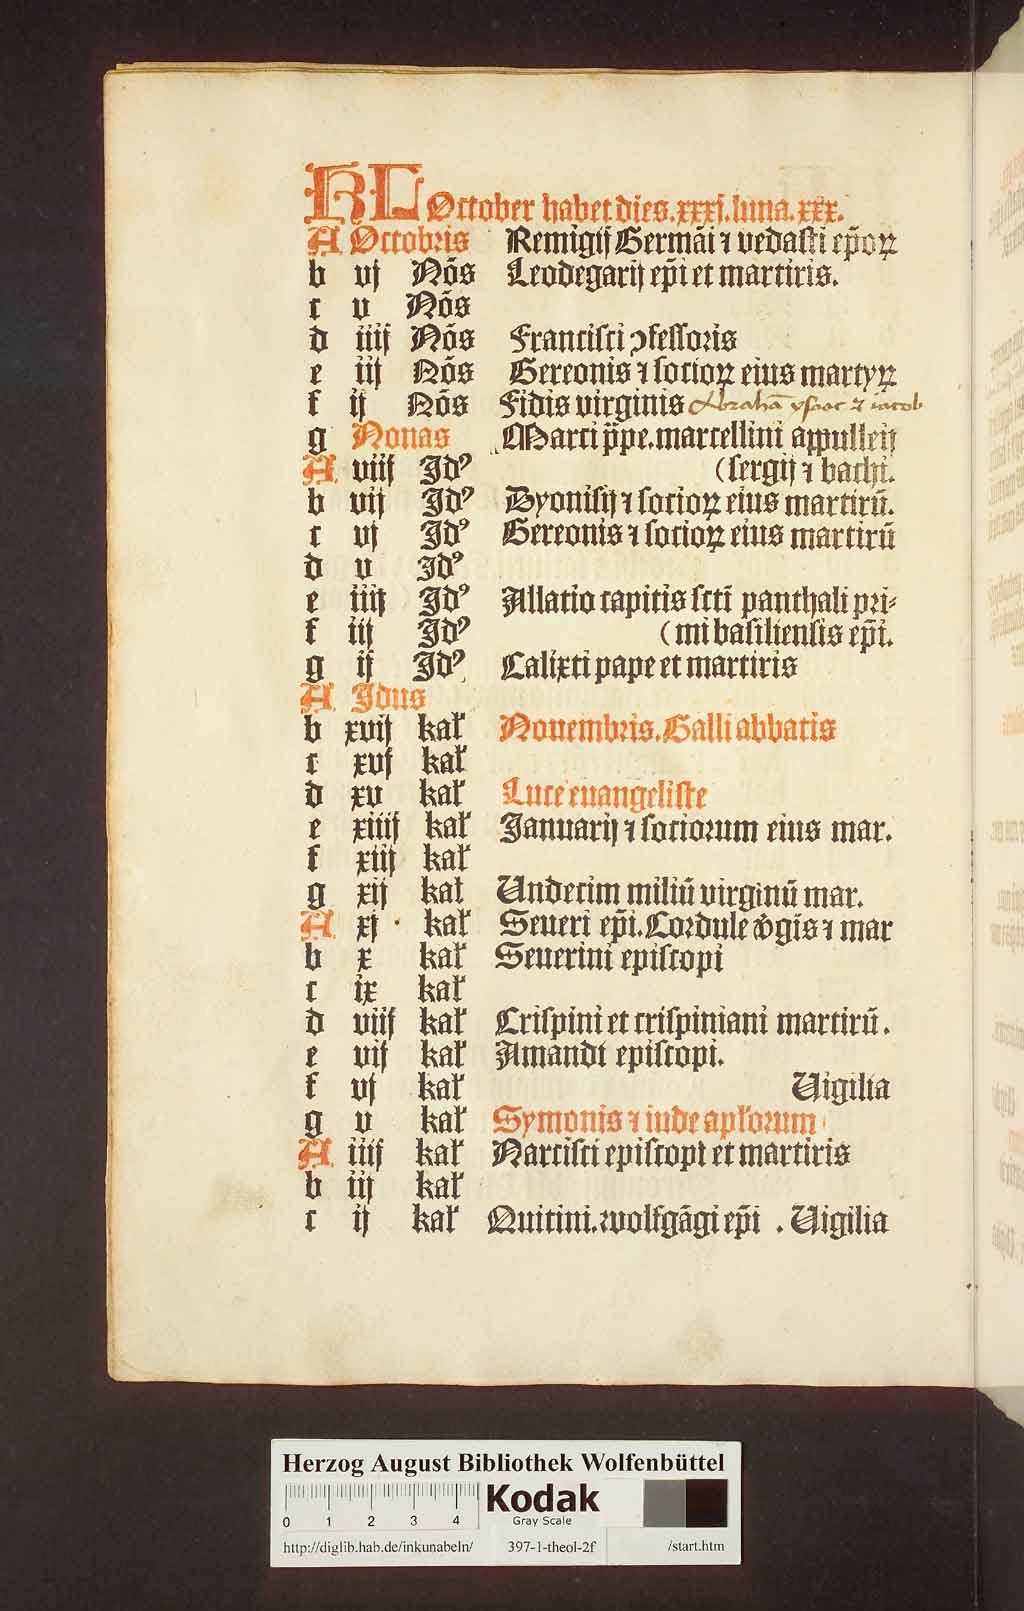 KL October habet dies.xxxj.luna.xxx.
A Octobris Remigij Germāi ⁊ vedasti ep̄oꝝ
b vj Nōs Leodegarij ep̄i et martiris.
c v Nōs
d iiij Nōs Francisci ꝯfessoris
e iij Nōs Gereonis ⁊ socioꝝ eius martyꝝ
f ij Nōs Fidis virginis Abrahā ysaac ⁊ iacob
g Nonas Marci p̄pe.marcellini appulleij
A viij Jdꝰ (sergij ⁊ bachi.
b vij Jdꝰ Dyonisij ⁊ socioꝝ eius martirū.
c vj Jdꝰ Gereonis ⁊ socioꝝ eius martirū
d v Jdꝰ
e iiij Jdꝰ Allatio capitis sctī panthali pri⸗
f iij Jdꝰ (mi basiliensis ep̄i.
g ij Jdꝰ Calixti pape et martiris
A Jdus
b xvij kal̛ Nouembris.Galli abbatis
c xvj kal̛
d xv kal̛ Luce euangeliste
e xiiij kal̛ Januarij ⁊ sociorum eius mar.
f xiij kal̛
g xij kal Undecim miliū virginū mar.
A xj · kal̛ Seueri ep̄i.Cordule v̄gis ⁊ mar
b x kal̛ Seuerini episcopi
c ix kal̛
d viij kal̛ Crispini et crispiniani martirū.
e vij kal̛ Amandi episcopi.
f vj kal̛ Uigilia
g v kal̛ Symonis ⁊ iude apl̛orum
A iiij kal̛ Narcisci episcopi et martiris
b iij kal̛
c ij kal̛ Quitini.wolfgāgi ep̄i . Uigilia
Herzog August Bibliothek Wolfenbüttel
0 1 2 3 4 Kodak
Gray Scale
http://diglib.hab.de/inkunabeln/ 397-1-theol-2f /start.htm